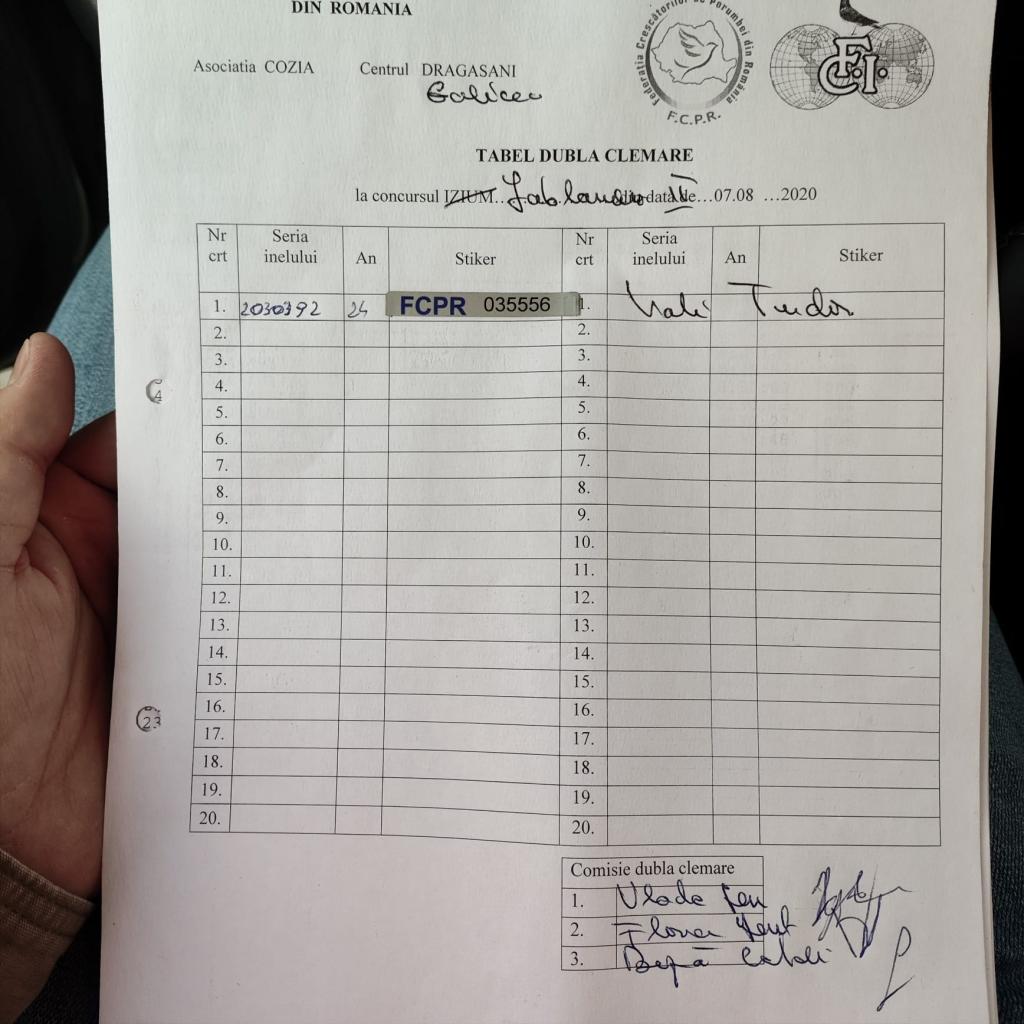 DIN ROMANIA
Asociatia COZIA Centrul DRAGASANI
Federația Crescătorilor de Porumbei din România
F.C.P.R.
F.C.I.
TABEL DUBLA CLEMARE
la concursul IZIUM.. II din data de...07.08 ...2020
Nr crt Seria inelului An Stiker Nr crt Seria inelului An Stiker
1. 2030392 24 FCPR 035556 1. Vali Tudor
2. 2.
3. 3.
4. 4.
5. 5.
6. 6.
7. 7.
8. 8.
9. 9.
10. 10.
11. 11.
12. 12.
13. 13.
14. 14.
15. 15.
16. 16.
17. 17.
18. 18.
19. 19.
20. 20.
Comisie dubla clemare
1. Vlada
2.
3.
4
23